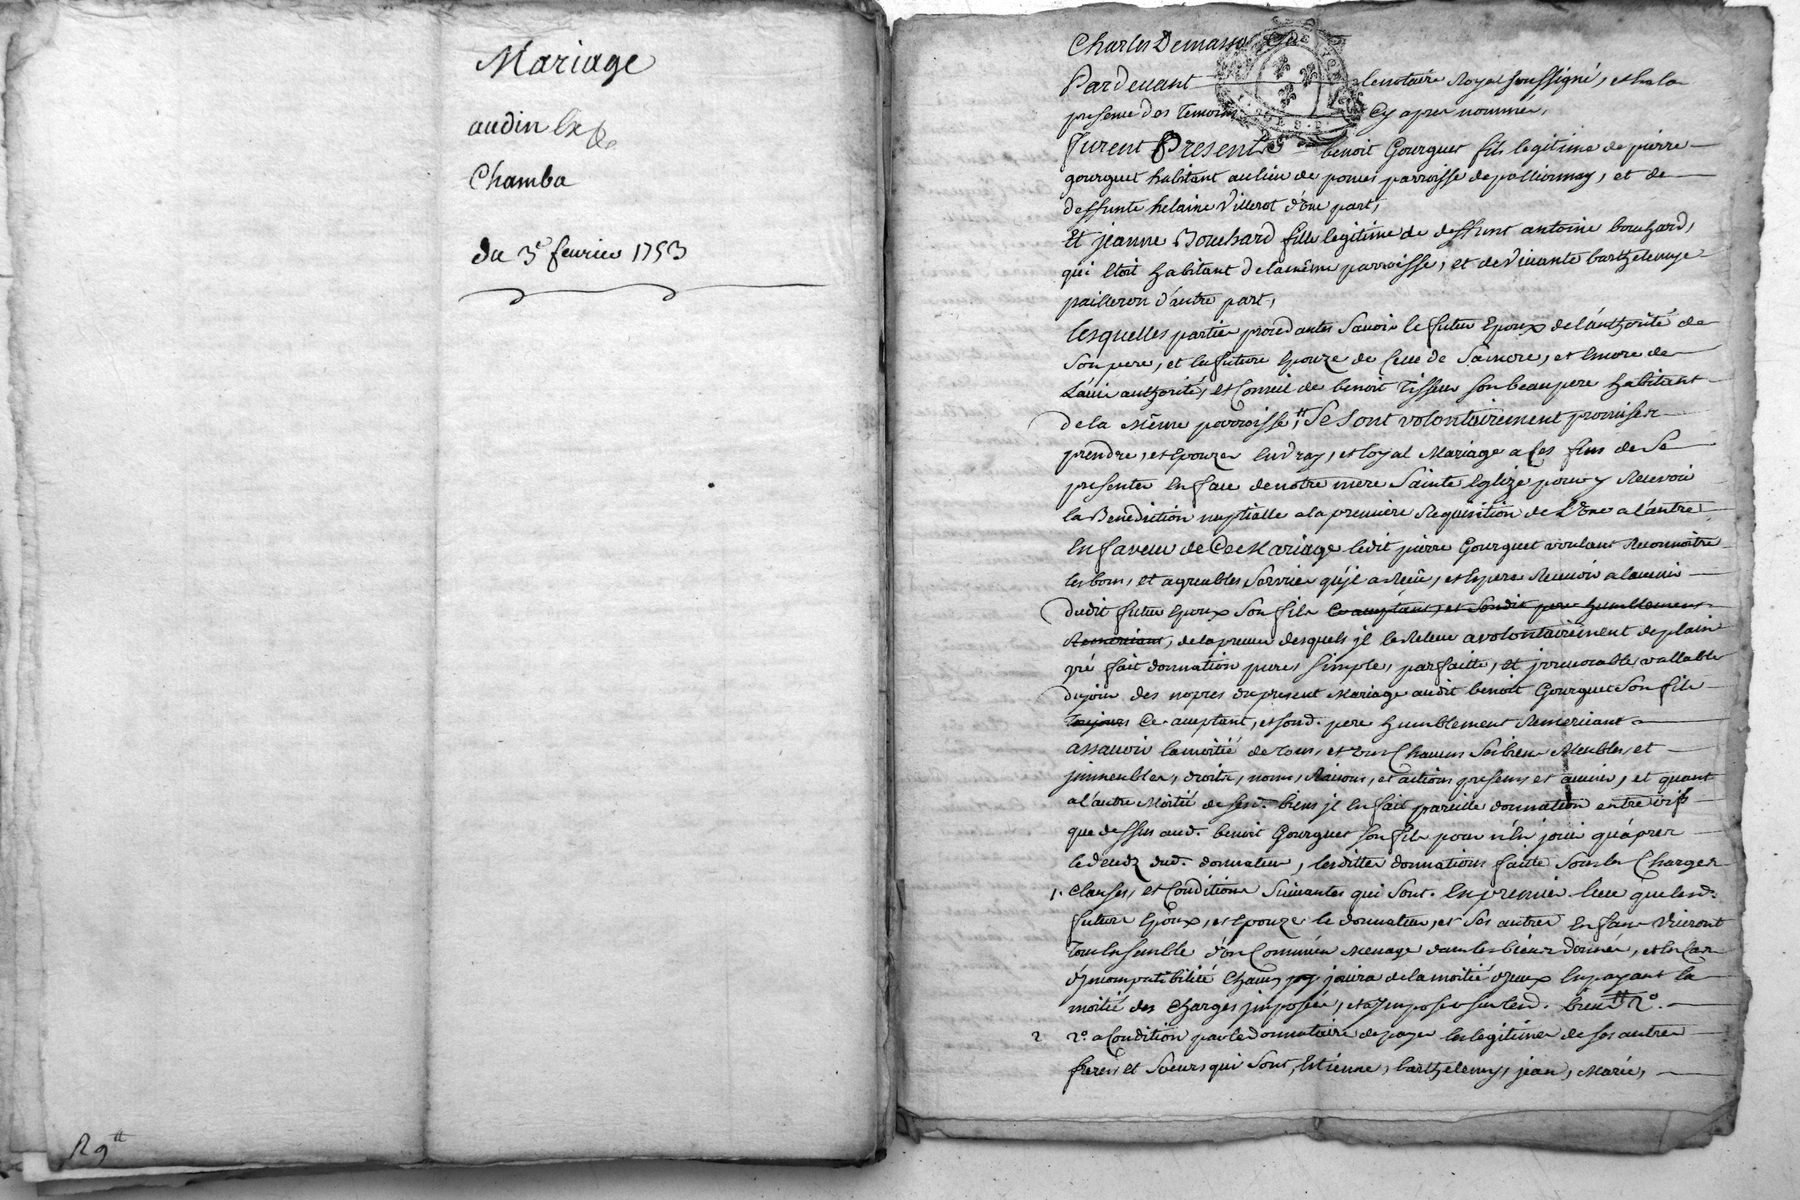 Mariage
audin
Chamba
du 3e feurier 1753
R 9tt
Charles Demasso
Pardeuant le notaire Royal soussigné, et en la
presence des temoins Cy apres nommés,
furent Presents benoit Gourguet fils legitime de pierre
gourguet habitant au lieu de parroisse de pollionnay, et de
deffunte helaine Villerot d'une part,
Et jeanne Bouchard fille legitime de deffunt antoine bouchard,
qui etoit habitant de la même parroisse, et de viuante barthelemye
pailleron d'autre part,
lesquelles parties procedantes sauoir le futur Epoux de l'authorité de
son pere, et la future Epouze de celle de sa mere, et encore de
L'auis authorité, et Conseil de benoit Tisseur son beaupere habitant
de la même parroisse, se sont volontairement promises
prendre, et Epouzer en vray, et loyal Mariage a ces fins de se
presenter en face de notre mere sainte Eglize pour y Receuoir
la Benediction nuptialle a la premiere Requisition de L'une a l'autre
En faueur de Ce Mariage ledit pierre Gourguet voulant Reconnoitre
les bons, et agreables seruices qu'jl a Reçû, et Espere Receuoir a l'auenir
dudit futur Epoux son fils Ce acceptant, et sondit pere humblement
Remerciant, de la preuue desquels jl le Releue a volontairement de plain
gré fait donnation pure, simple, parfaitte, et jrreuocable vallable
du jour des nopces du present Mariage audit benoit Gourguet son fils
toujours Ce acceptant, et sond. pere humblement Remerciant
assauoir la moitié de tous, et un Chacuns ses biens Meubles, et
jmmeubles, droits, noms, Raisons, et actions presens, et auenir, et quant
a l'autre Moitié de sesd. biens jl en fait pareille donnation entre vifs
que dessus aud. benoit Gourguet son fils pour n'en jouir qu'àpres
le decedz dud. donnateur, lesdittes donnations faites sous les Charges
1. Clauses, et Conditions suiuantes qui sont. En premier lieu que lesd.
futurs Epoux, et Epouze le donnateur, et ses autres Enfans viuront
tous ensemble d'un Commun Menage dans les biens donnés, et en Cas
d'jncompatibilité Chacun jouira de la moitié d'jceux En payant la
moitié des Charges jmposées, et a jmposer sur lesd. biens 2o.
2 2o. a Condition par le donnataire de payer les legitimes de ses autres
freres et soeurs qui sont, Estienne, barthelemy, jean, Marie,